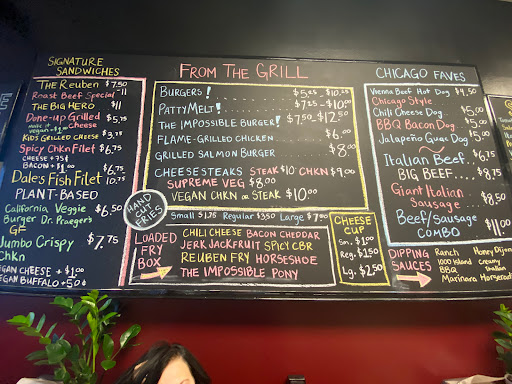 SIGNATURE
SANDWICHES
THE REUBEN $7.50
Roast Beef Special -11
THE BIG HERO $11
Done-up Grilled $5.75
make it vegan +$1.00 Cheese
KIDS GRILLED CHEESE $3.75
Spicy CHKN FILET $6.75
CHEESE +75¢
BACON +$1.00
DALE'S FISH FILET $6.75
10.75
PLANT-BASED
California Veggie $6.50
Burger Dr. Praeger's
GF
Jumbo Crispy $7.75
Chkn
VEGAN CHEESE + $1.00
VEGAN BUFFALO +50¢
FROM THE GRILL
BURGERS! $5.25-$10.25
PATTYMELT! $7.25-$10.00
THE IMPOSSIBLE BURGER! $7.50-$12.50
FLAME-GRILLED CHICKEN $6.00
GRILLED SALMON BURGER $8.00
CHEESESTEAKS STEAK $10 CHKN $9.00
SUPREME VEG $8.00
VEGAN CHKN OR STEAK $10.00
HAND CUT FRIES
Small $1.75 Regular $3.50 Large $7.00
LOADED
FRY
BOX
CHILI CHEESE BACON CHEDDAR
JERK JACKFRUIT SPICY CBR
REUBEN FRY HORSESHOE
THE IMPOSSIBLE PONY
CHEESE
CUP
Sm. $1.00
Reg. $1.50
Lg. $2.50
CHICAGO FAVES
Vienna Beef Hot Dog $4.50
Chicago Style
Chili Cheese Dog $5.00
BBQ Bacon Dog $5.00
Jalapeño Guac Dog $5.00
Italian Beef $6.75
BIG BEEF $8.75
Giant Italian $8.50
Sausage
Beef/sausage $11.00
COMBO
DIPPING
SAUCES
Ranch Honey Dijon
1000 Island Creamy
BBQ
Marinara Horserad